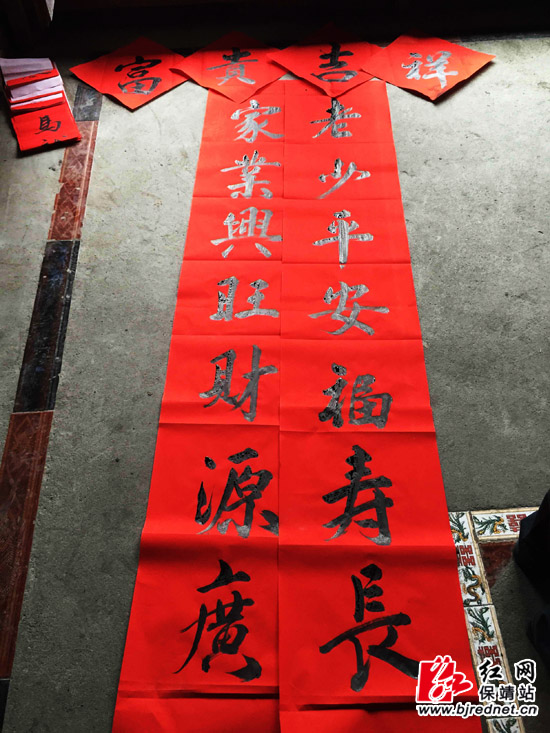 富貴吉祥
老少平安福壽長
家業興旺財源廣
馬
红网
保靖站
www.bjrednet.cn